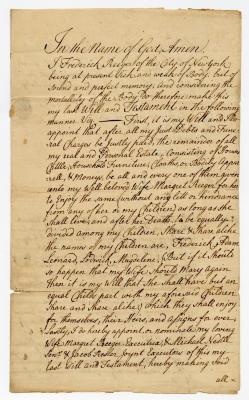 In the Name of God, Amen.
I Frederick Reeger of the City of New York
being at present Sick, and weak of Body, but of
sound and perfect memory, and considering the
mortallity of the Body, do therefore make this
my last Will and Testament in the following
manner Viz — First, it is my Will and I do
appoint that after all my Just Debts and Fune-
ral Charges be Justly paid, the remainder of all
my real and Personal Estate, Consisting of
Household Furniture, or Bodily Appar-
rell, & Money be all and every one of them given
unto my Well beloved Wife Margret Reeger for her
to Enjoy the same (without any let or hinderance
from any of her or my Children) as long as she
shall live, and after her Death, to be equally
divided among my Children, Share & Share alike
the names of my Children are, Frederick, Adam
Leonard, Lodwick, Magdalene, (But if it should
so happen that my Wife should Marry again
then it is my Will that She shall have but an
equal Childs part with my aforesaid Children
Share and Share alike) which they shall enjoy
for themselves, their Heirs, and assigns for ever
Lastly, I do hereby appoint, or nominate, my loving
Wife Margret Reeger Executrix & Michael
Senr. & Jacob joynt Executors of this my
last Will and Testament, hereby making Void
all